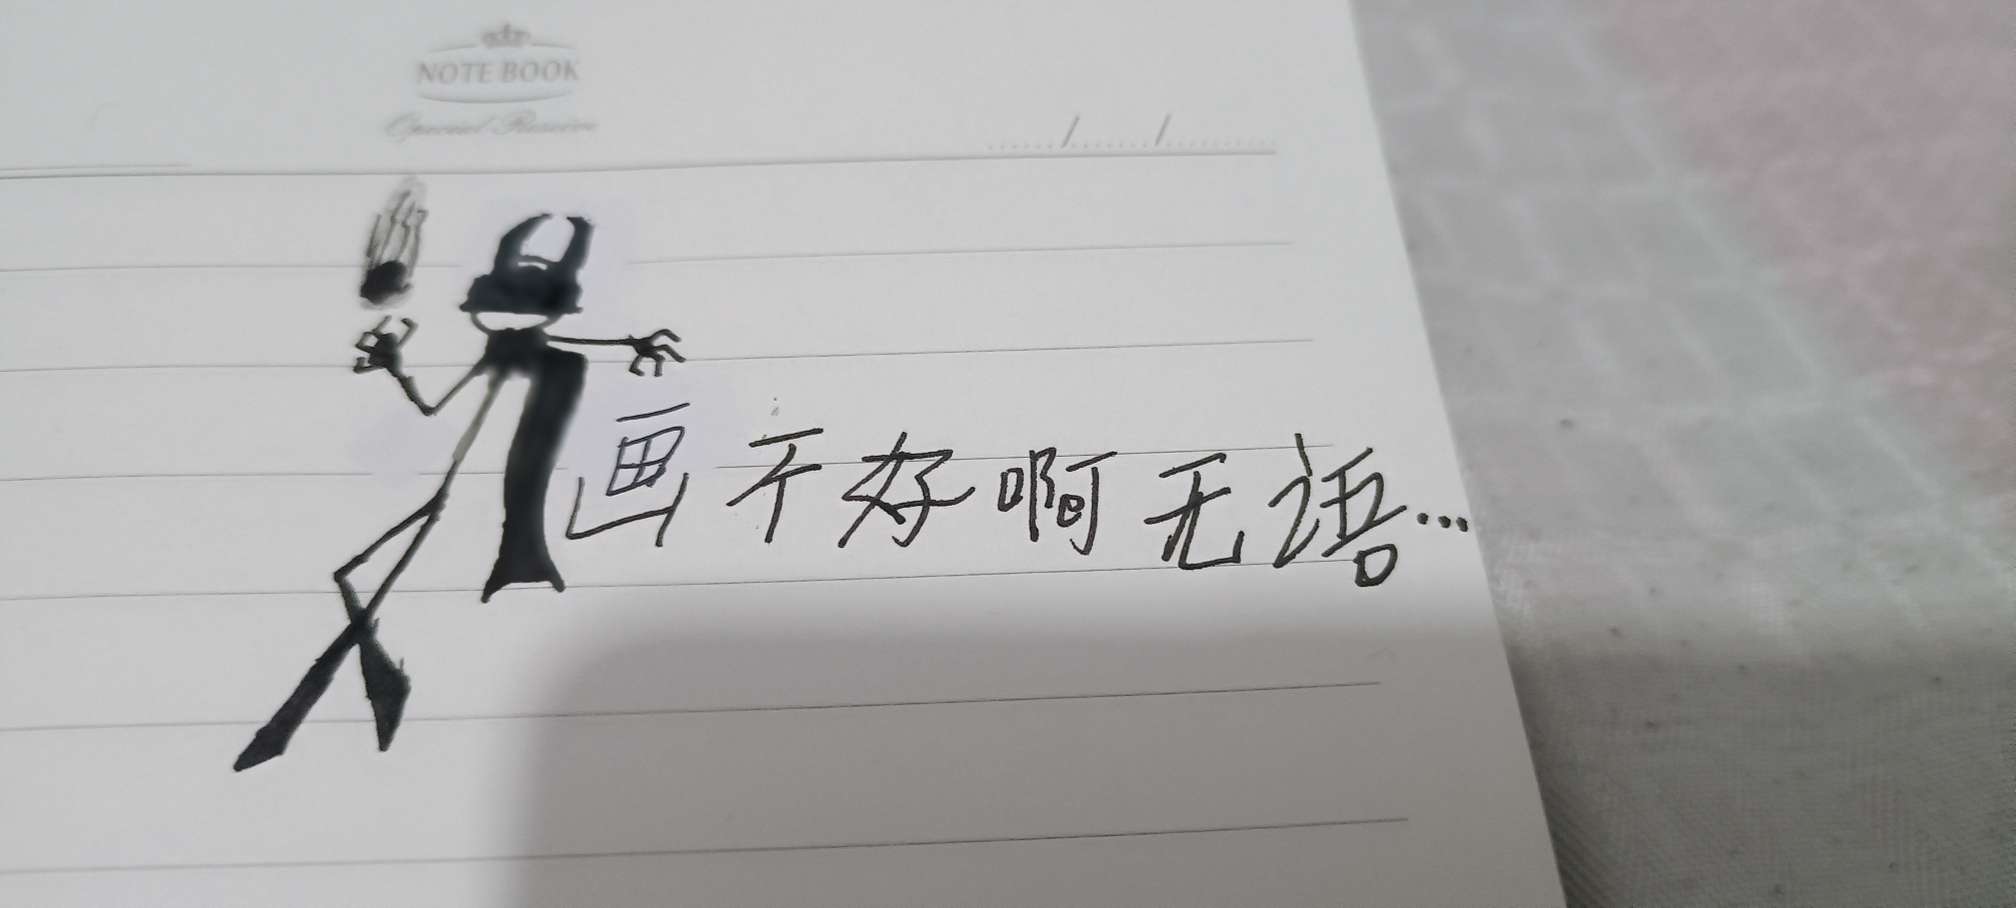 NOTE BOOK
Special Reserve
画不好啊无语...